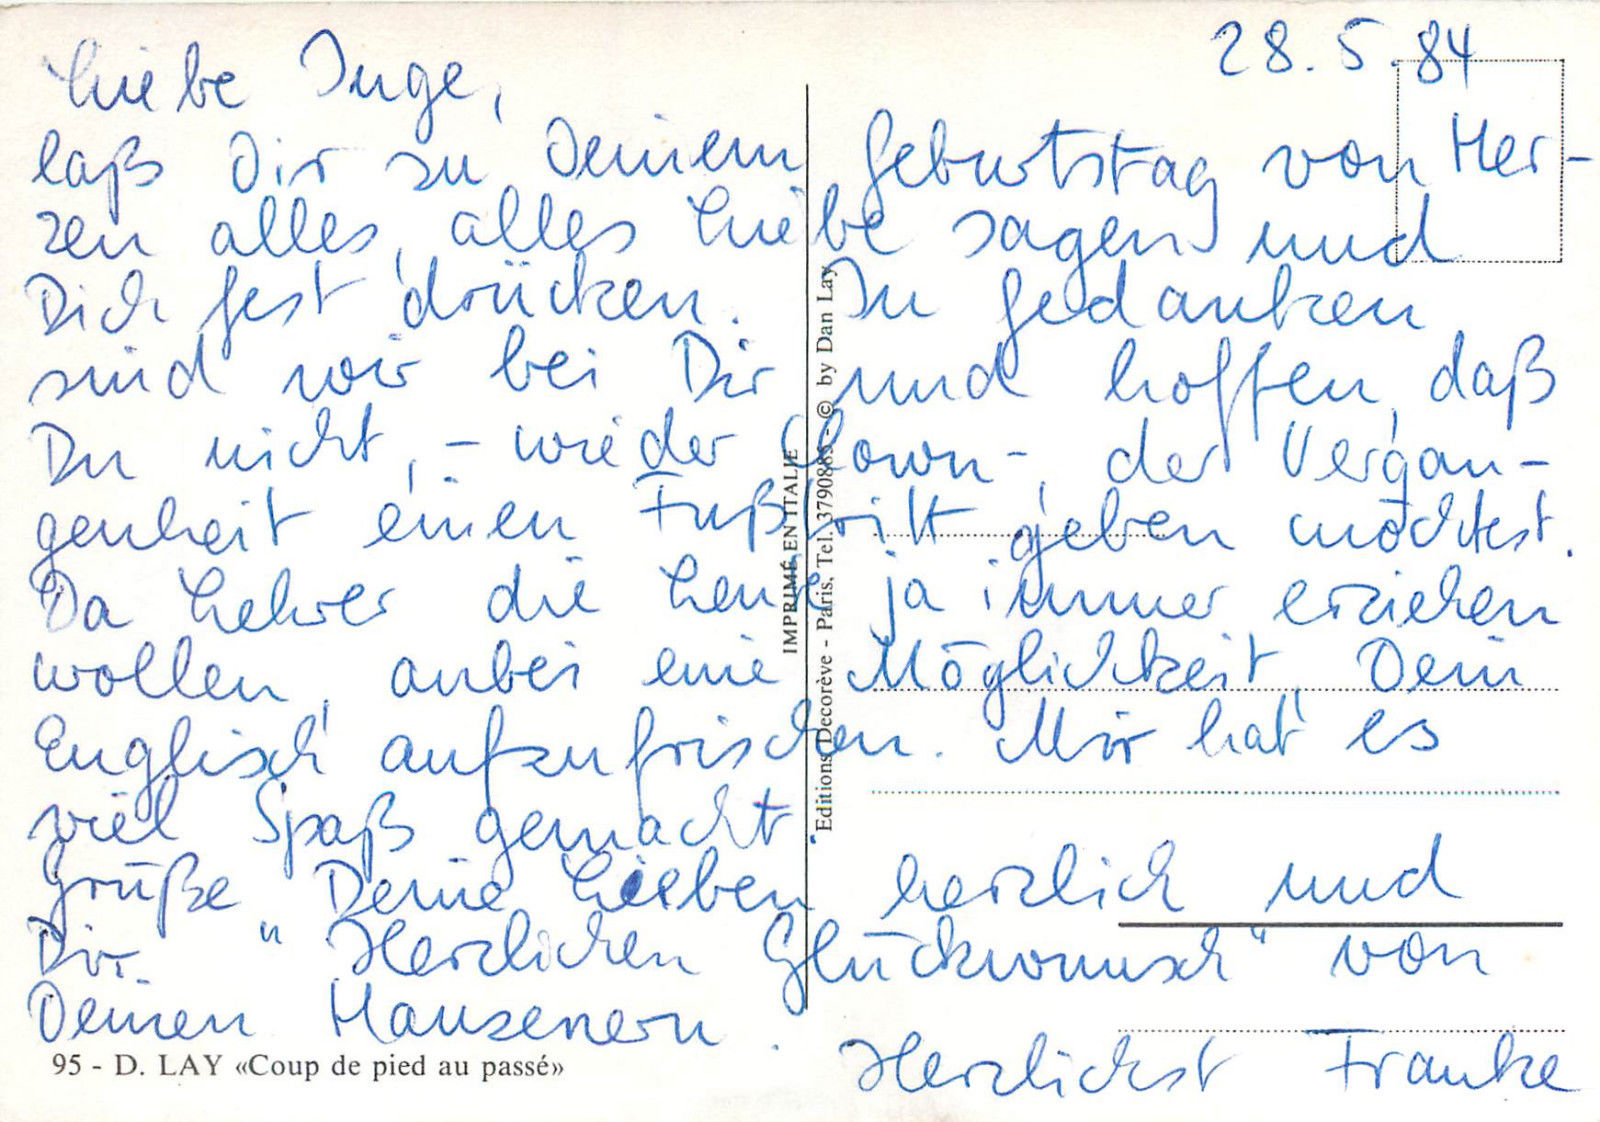 28.5.84
Liebe Inge,
laß Dir zu Deinem Geburtstag von Her-
zen alles, alles Liebe sagen und
Dich fest drücken. In Gedanken
sind wir bei Dir und hoffen, daß
Du nicht, - wie der Clown -, der Vergan-
genheit einen Fußtritt geben möchtest.
Da Lehrer die Leute ja immer erziehen
wollen, anbei eine Möglichkeit, Dein
Englisch aufzufrischen. Mir hat es
viel Spaß gemacht.
Grüße Deine Lieben herzlich und
Dir "Herzlichen Glückwunsch" von
Deinen Hausenern.
Herzlichst Frauke
95 - D. LAY «Coup de pied au passé»
IMPRIMÉ EN ITALIE
Editions Decorève - Paris. Tel. 3790885 - © by Dan Lay